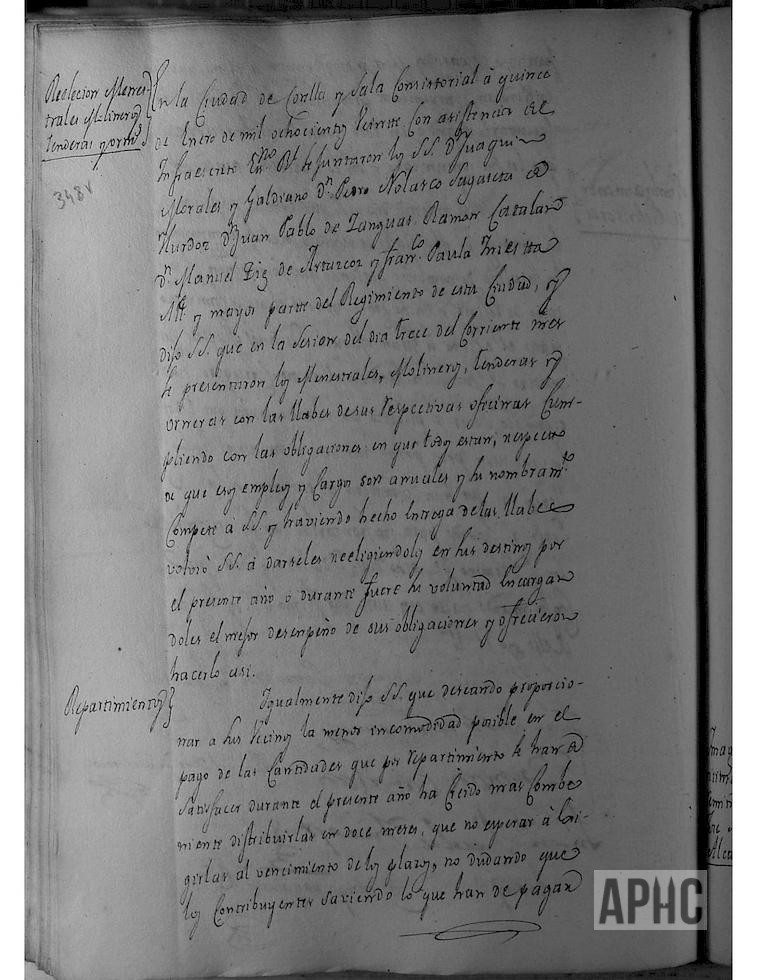 Reelecion Menes-
trales Molineros
tenderas y orns.
348v
En la Ciudad de Corella y Sala Consistorial á quince
de Enero de mil ochocientos Veinte Con asistencia de
Infraescrito Essno. Rl. se juntaron los S.S. Dn. Juaquin
Morales y Galdeano Dn. Pedro Nolasco Sagaseta de
Dn. Juan Pablo de Ramon Catalan
Dn. Manuel de y Franco. Paula
All. y mayor parte del Regimiento de esta Ciudad, y
dijo S.S. que en la Sesion del dia trece del Corriente mes
se presentaron los Menestrales, Molineros, tenderas y
orneras con las llabes de sus respectivas oficinas Cum-
pliendo con las obligaciones en que todos estan, respecto
de que esos empleos y Cargos son anuales y su nombramto.
Compete a S.S. y haviendo hecho entrega de las llabes
volvió S.S. á darseles reeligiendolos en sus destinos por
el presente año o durante fuere su voluntad encargan
doles el mejor desenpeño de sus obligaciones y ofrecieron
hacerlo asi.
Repartimientos
Igualmente dijo S.S. que deseando proporcio-
nar a sus Vecinos la menor incomodidad posible en el
pago de las Cantidades que por repartimiento se han de
satisfacer durante el presente año ha Creido mas Combe
niente distribuirlas en doce meses, que no esperar á Exi-
girlas al vencimiento de los plazos, no dudando que
los Contribuyentes saviendo lo que han de pagar
APHC